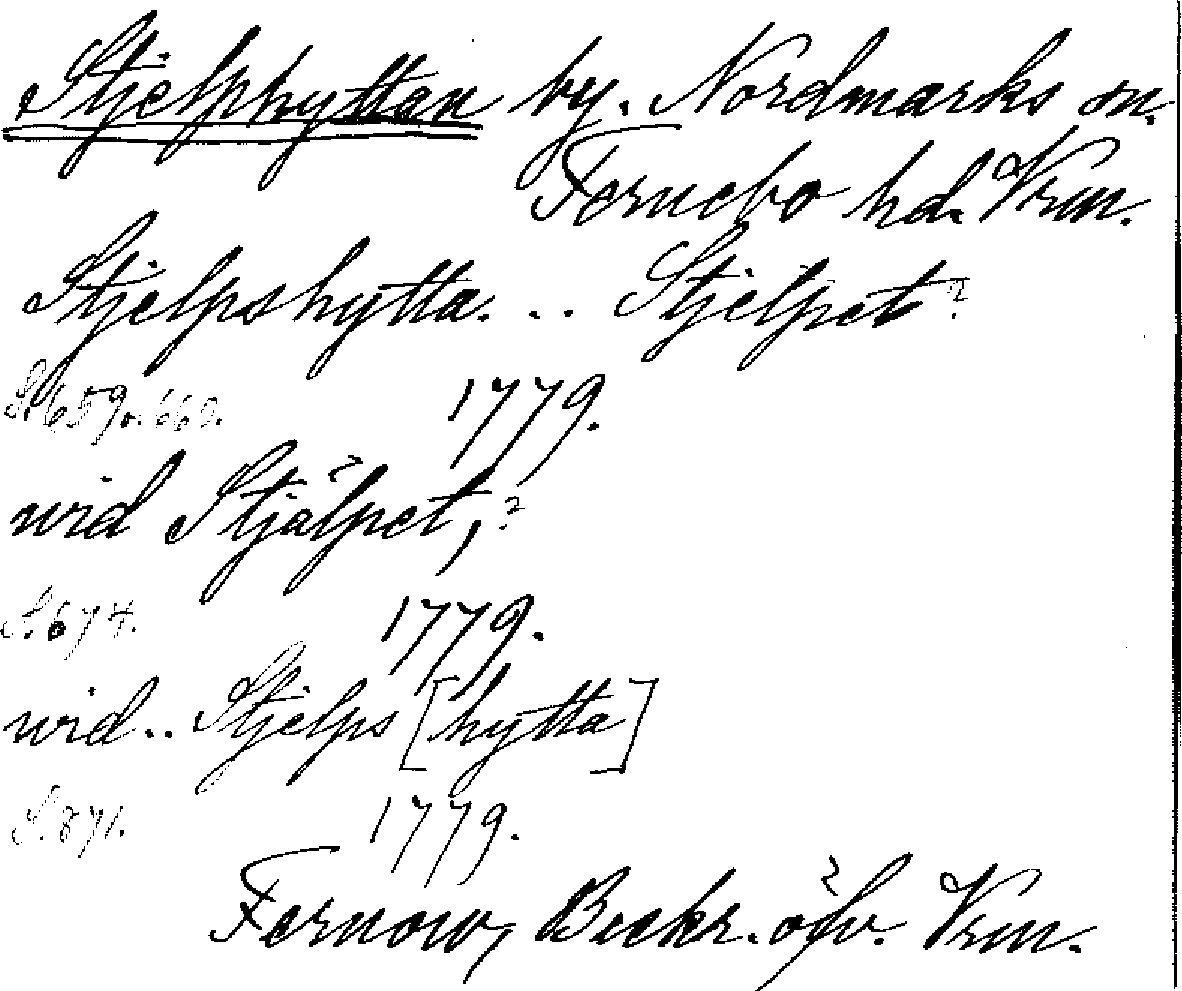 Stjelphyttan by. Nordmarks sn.
Fernebo hd. Vrm.
Stjelpshytta. .. Stjelpet?
S. 659 o. 660. 1779.
wid Stjälpet,?
S. 674. 1779.
wid.. Stjelps [hytta]
S. 871. 1779.
Fernow, Beskr. öfv. Vrm.